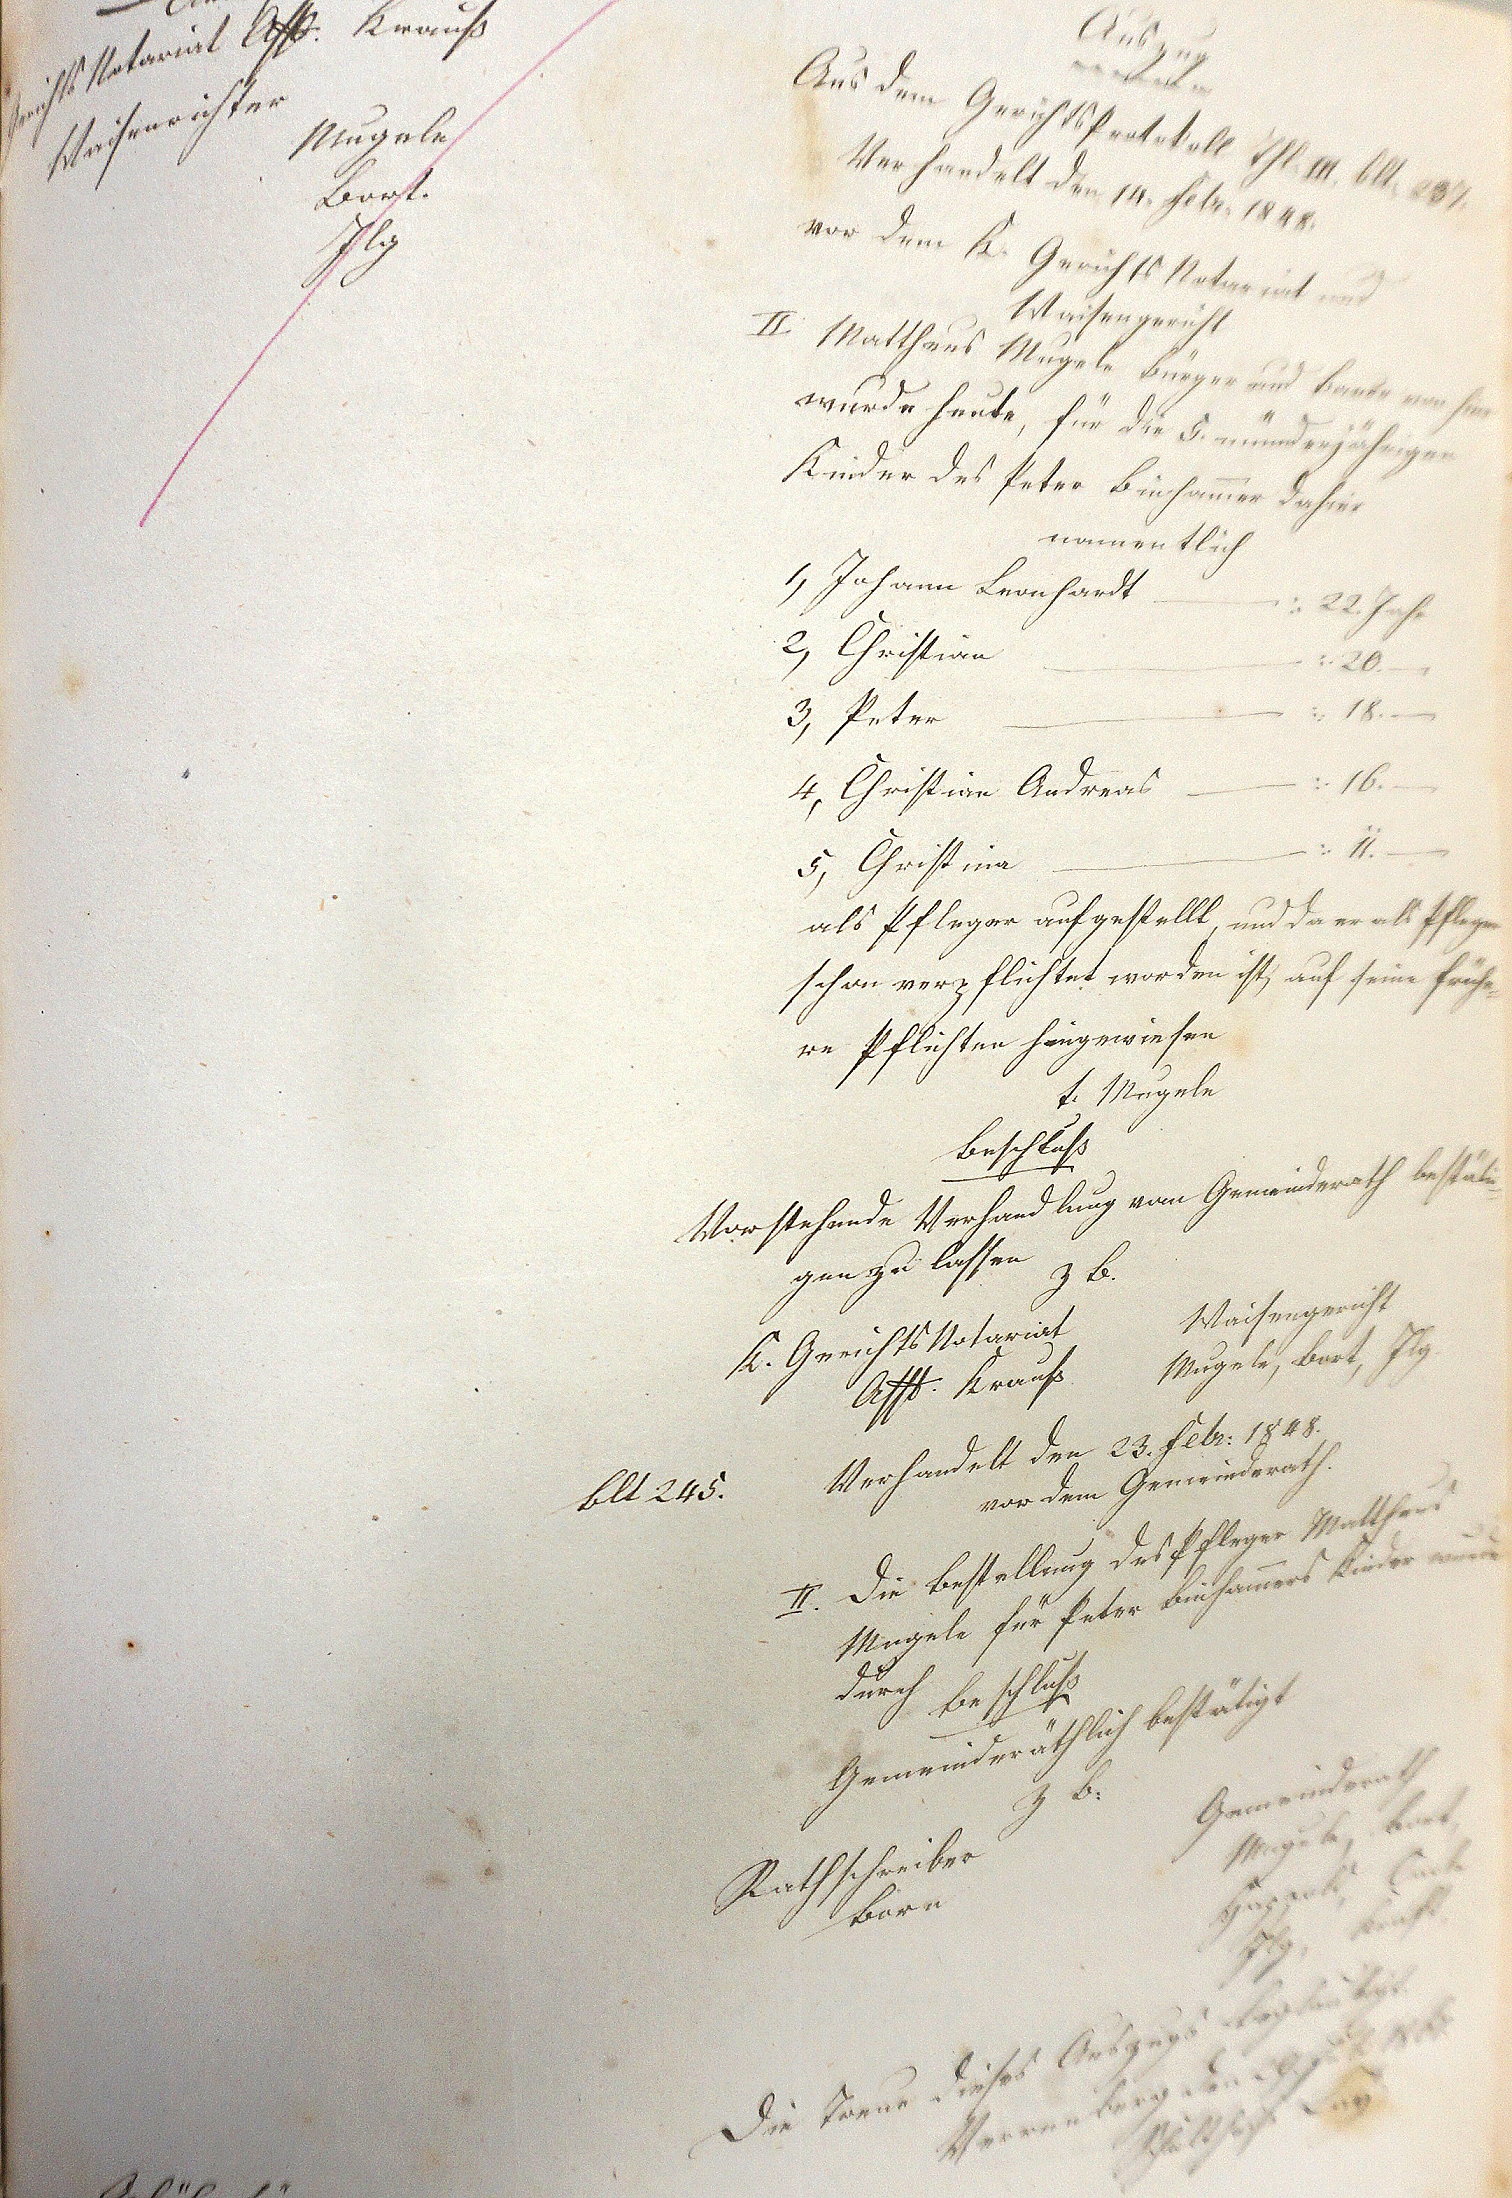 Gerichts Notariat Asst. Krauß
Waisenrichter
Mugele
Bort.
Ilg
Auszug
Aus dem Gerichtsprotokoll Thl. III. Blt. 237.
Verhandelt den 14. Febr. 1848.
vor dem K. Gerichts Notariat und
Waisengericht
II Mattheus Mugele Bürger und Bauer von hier
wurde heute, für die 5. minderjährigen
Kinder des Peter Binham̅er dahier
namentlich
1, Johann Leonhardt — : 22. Jahr
2, Christian — : 20. —
3, Peter — : 18. —
4, Christian Andreas — : 16. —
5, Christina — : 11. —
als Pfleger aufgestellt, und da er als Pfleger
schon verpflichtet worden ist, auf seine frühe-
re Pflichten hingewiesen
t. Mugele
Beschluß
Vorstehende Verhandlung vom Gemeinderath bestäti-
gen zu lassen
z B.
K. Gerichts Notariat
Asst. Krauß
Waisengericht
Mugele, Bort, Ilg
Blt 245.
Verhandelt den 23. Febr: 1848.
vor dem Gemeinderath.
II. Die Bestellung des Pfleger Mattheus
Mugele für Peter Binham̅ers Kinder wurde
durch Beschluß
Gemeinderäthlich bestätigt
z B:
Rathschreiber
Born
Gemeinderath
Mugele, Bort,
Ilg,
Die Treue dieses Auszugs beglaubigt
Verrenberg den